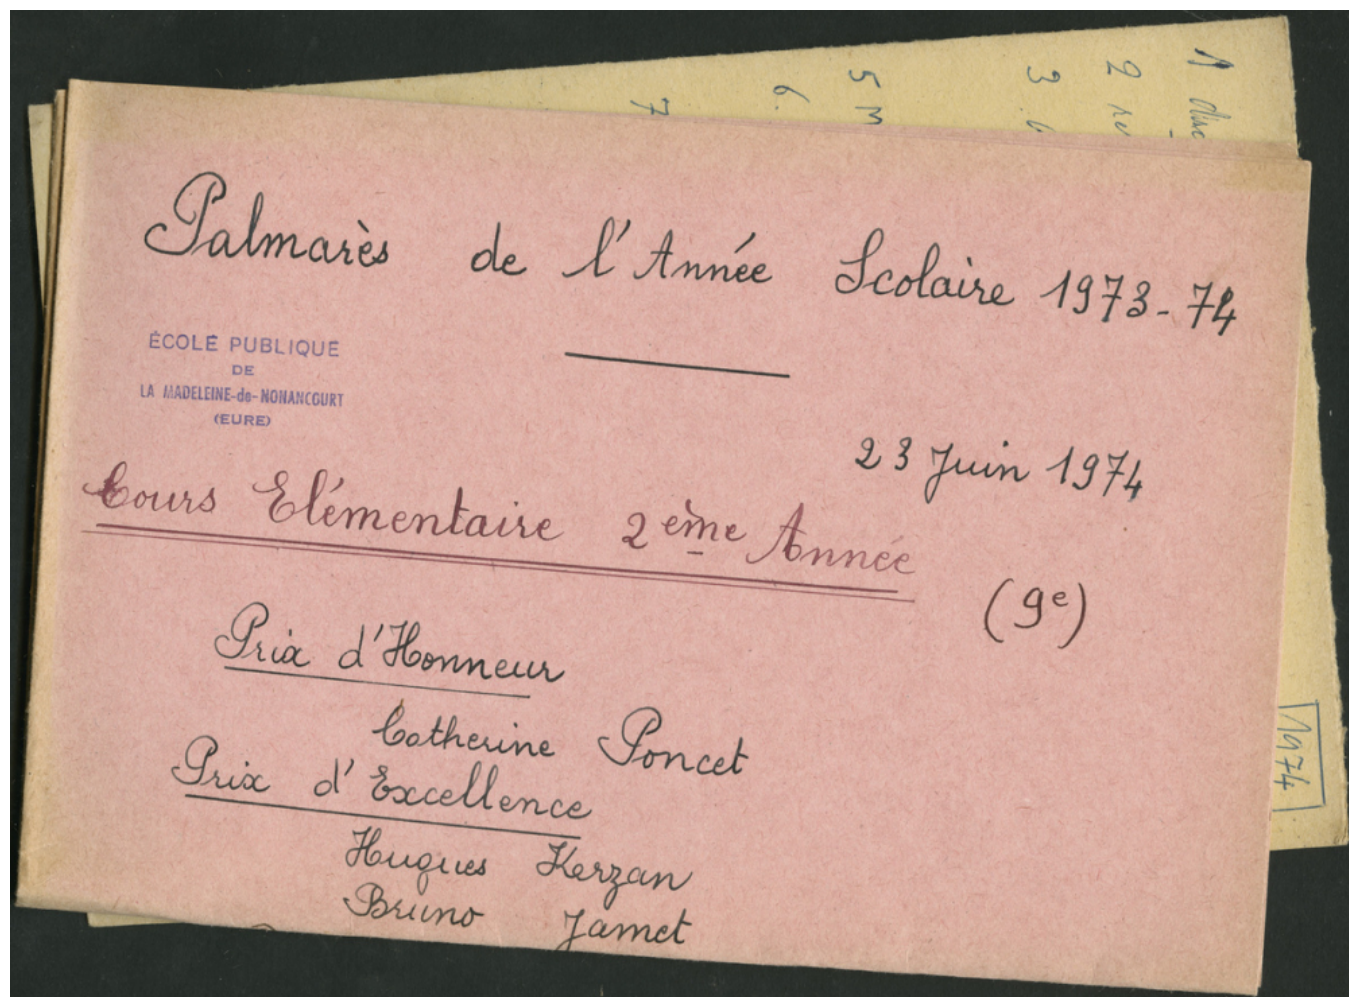 1 
2
3
5 M
6.
7
Palmarès de l'Année Scolaire 1973-74
ÉCOLE PUBLIQUE
DE
LA MADELEINE-de-NONANCOURT
(EURE)
23 Juin 1974
Cours Elémentaire 2ème Année
(9e)
Prix d'Honneur
Catherine Poncet
Prix d'Excellence
Hugues Kerzan
Bruno Jamet
1974